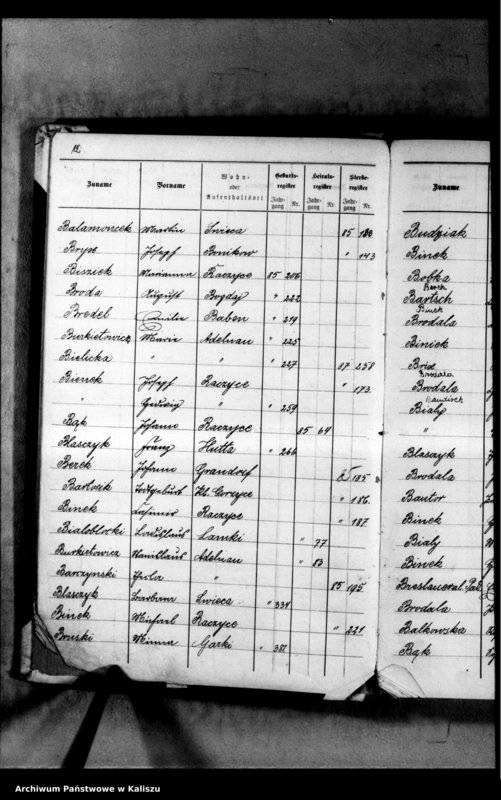 12
Zuname Vorname Wohn- oder Aufenthaltsort Geburts-register Heirats-register Sterbe-register
Jahr-gang Nr. Jahr-gang Nr. Jahr-gang Nr.
Balamoncek Martin Swieca 85
Bryx Josef Bonikow " 143
Bisziek Marianna Raczyce 85 206
Broda August Bogdaj " 222
Bredel Emilie Baben " 219
Burkietowicz Maria Adelnau " 225
Bielicka " " " 227 87 258
Bienek Josef Raczyce " 173
" Hedwig " " 259
Bąk Johann Raczyce 85 64
Blaszyk Franz Hutta " 266
Bezek Johann Grandorf 185
Bartosik Kl. Gorzyce " 186
Binek Kasimir Raczyce " 187
Bialoblocki Ladislaus Lamki " 77
Burkietowicz Stanislaus Adelnau " 83
Barczynski "  85 195
Blaszyk Barbara Swieca " 334
Binek Michael Raczyce " 221
Bruski Minna Garki " 381
Zuname
Budziak
Binek
Bobka
Bartsch
Brodala
Biniek
Brodala
Bialy
"
Blaszyk
Brodala
Bautor
Binek
Bialy
Binek
Brodala
Balkowska
Bąk
Archiwum Państwowe w Kaliszu